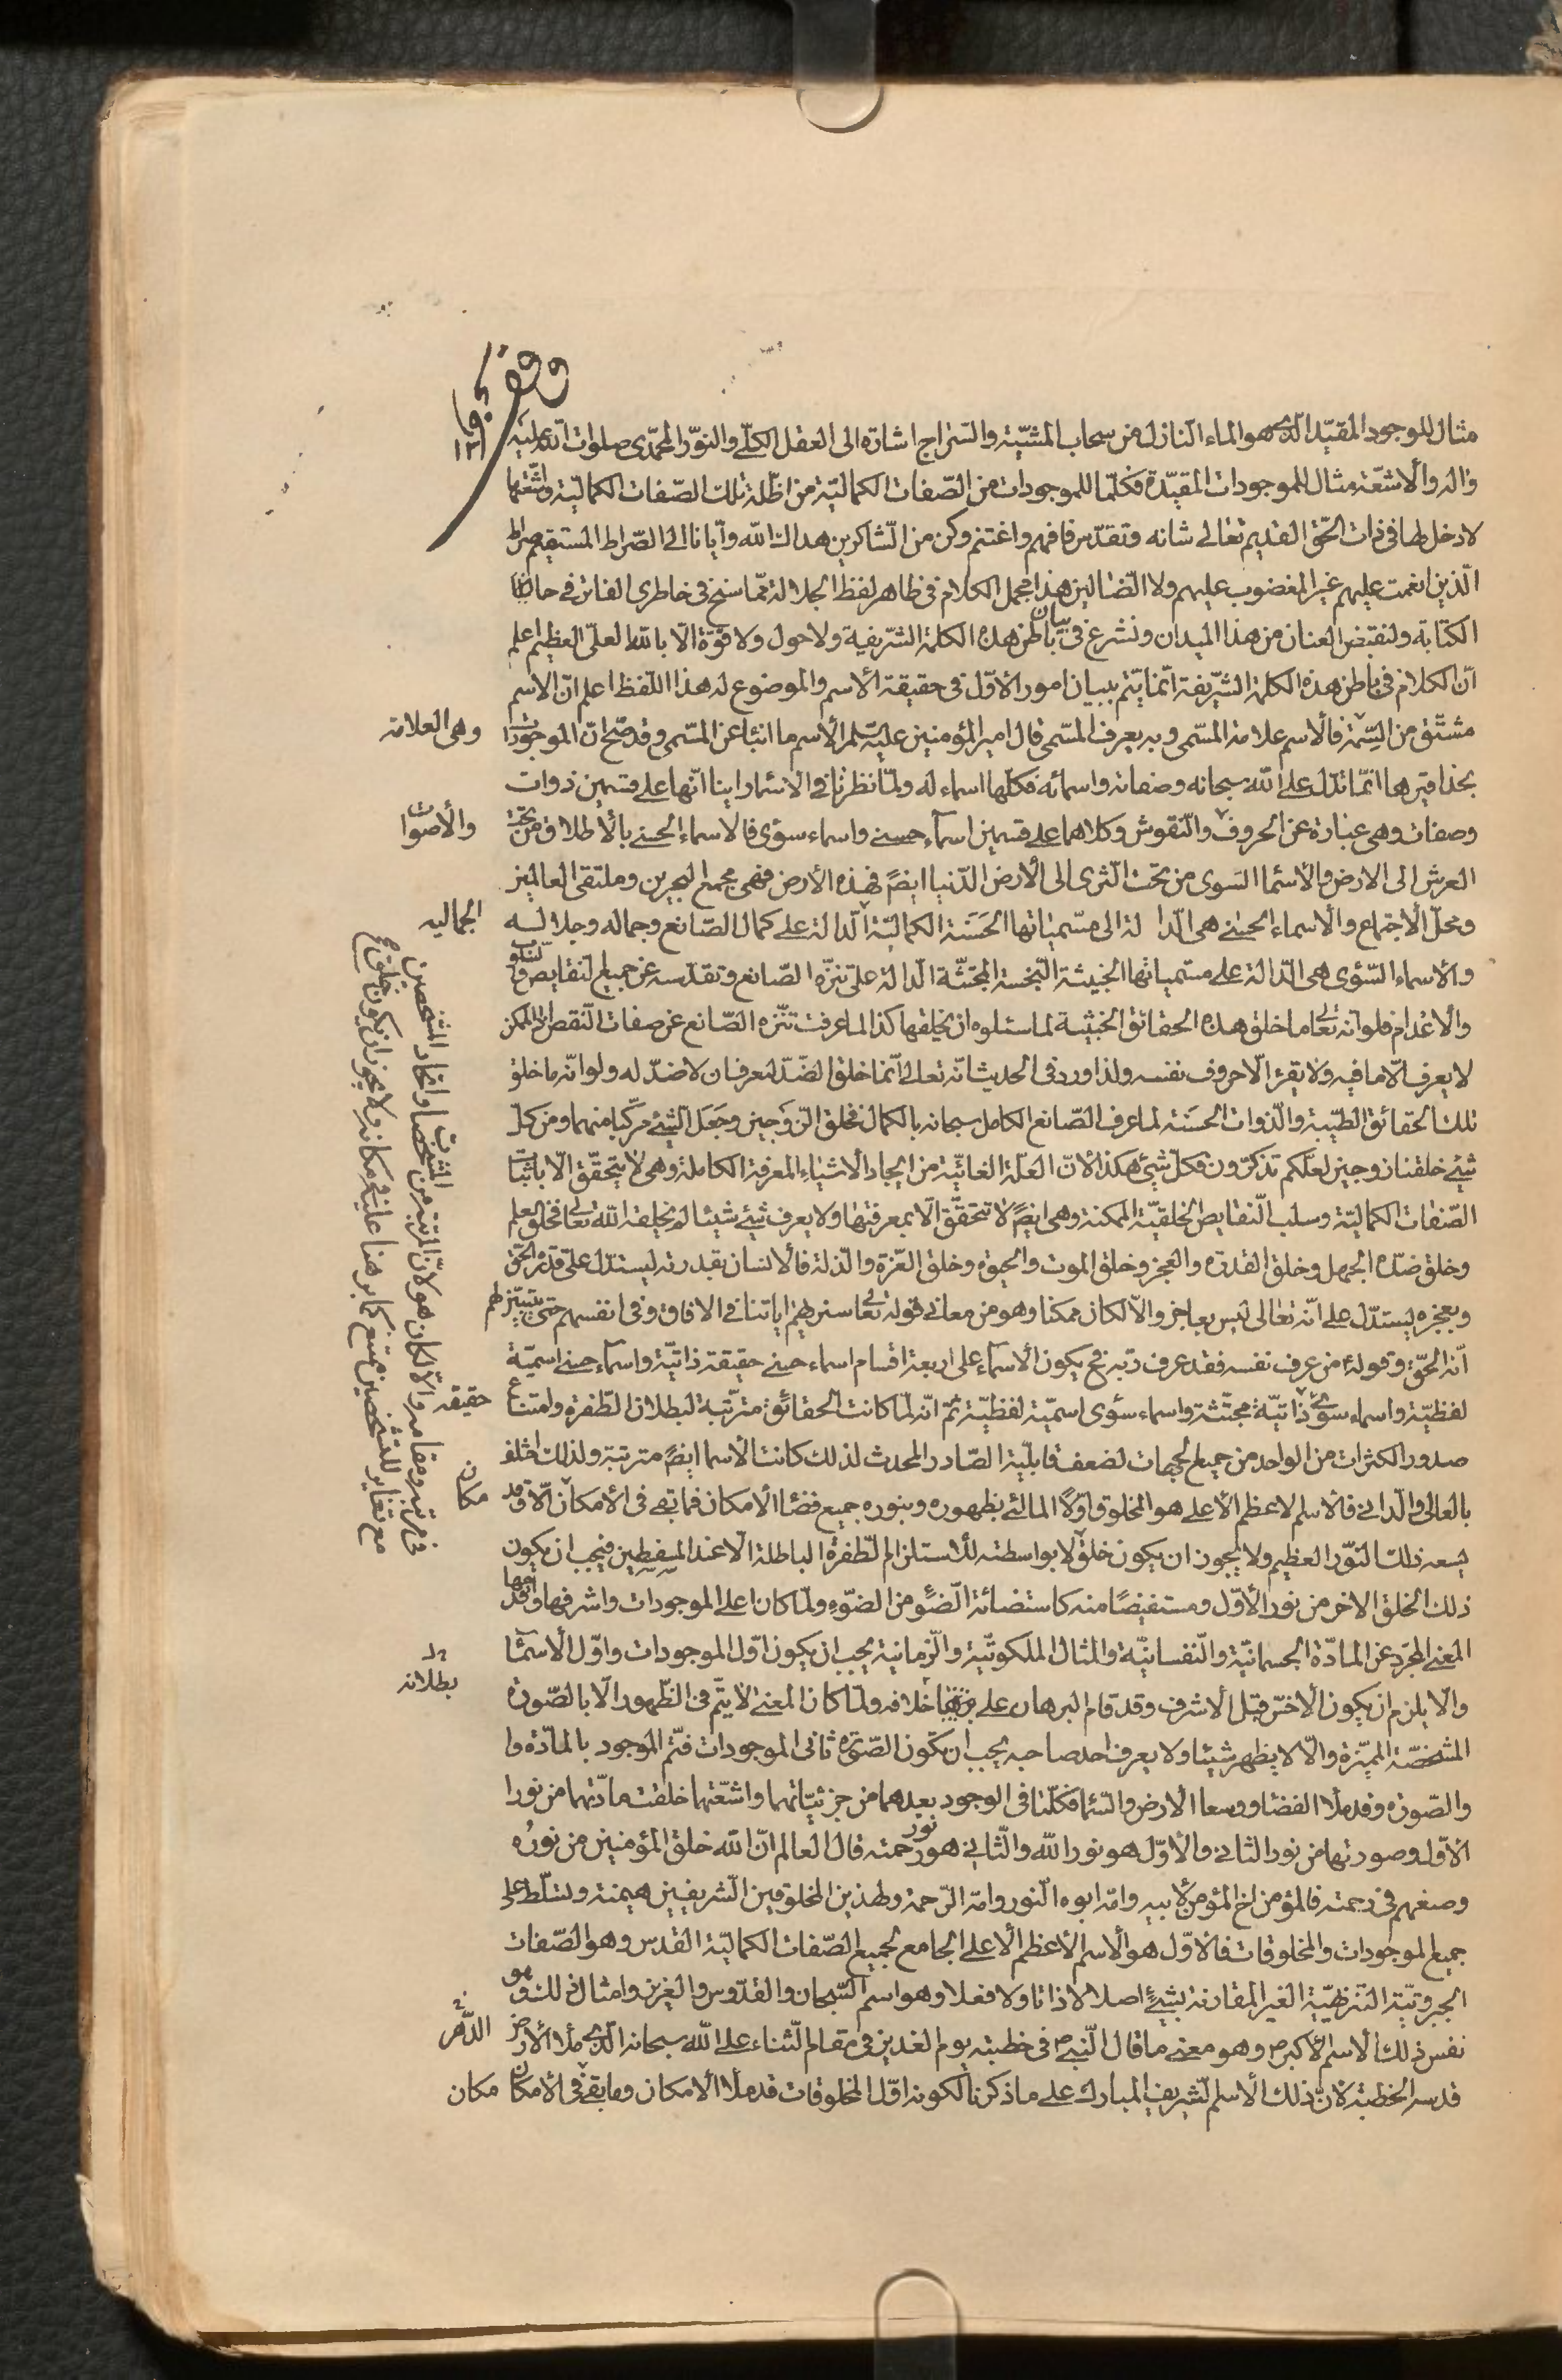 وقف
١٢١
مثال للموجود المقيّد الّذي هو الماء النّازل من سحاب المشيّة والسّراج اشارة الى العقل الكلّي والنّور المحمّدي صلوات اللّه عليه
واله والأشعّة مثال للموجودات المقيّدة فكلّما للموجودات من الصّفات الكماليّة من اظلّة تلك الصّفات الكماليّة واشعّتها
لا دخل لها في ذات الحقّ القديم تعالى شانه وتقدّس فافهم واغتنم وكن من الشّاكرين هداك اللّه وايّانا الى الصّراط المستقيم صراط
الّذين انعمت عليهم غير المغضوب عليهم ولا الضّالين هذا مجمل الكلام في ظاهر لفظ الجلالة ممّا سنخ في خاطري الفاتر في حال
الكتابة ولنقبض العنان من هذا الميدان ونشرع في بيان باطن هذه الكلمة الشّريفة ولا حول ولا قوّة الّا باللّه العليّ العظيم اعلم
انّ الكلام في باطن هذه الكلمة الشّريفة انّما يتمّ ببيان امور الأوّل في حقيقة الأسم والموضوع له هذا اللّفظ اعلم انّ الاسم
مشتّق من السّمة وهي العلامة فالأسم علامة المسّمى وبه يعرف المسّمى قال امير المؤمنين عليه السّلم الأسم ما انبئا عن المسّمى وقد صحّ انّ الموجودات
بحذافيرها انّما تدلّ على اللّه سبحانه وصفاته واسمائه فكلّها اسماء له ولمّا نظرنا في الاسماء راينا انّها على قسمين ذوات
وصفات وهي عبارة عن الحروف والأصوات والنّقوش وكلاهما على قسمين اسمآء حسنى واسماء سوٓى فالاسماء الحسنى بالأطلاق من تحت
العرش الى الارض والأسما السّوى من تحت الثّرى الى الأرض الدّنيا ايضً فهذه الأرض فهي مجمع البحرين وملتقى العالمين
ومحلّ الأجتماع والأسماء الحسنى هي الدّالة الى مسّمياتها الحَسَنة الكماليّة الجماليه الدّالة على كمال الصّانع وجماله وجلاله
والاسماء السّؤى هي الدّالة على مسّمياتها الخبيثة النّجسة المجتثّة الدّالة على تنزّه الصّانع وتقدّسه عن جميع النّقايص
والأعدام فلو انّه تعالى ما خلق هذه الحقائق الخبيثة لما سئلوه ان يخلقها كذا لما عرفت تنّزه الصّانع عن صفات النّقص اذ الممكن
لا يعرف الّا ما فيه ولا يقرء الّا حروف نفسه ولذا ورد في الحديث انّه تعالى انّما خلق الضّدّ ليعرف ان لا ضدّ له ولو انّه ما خلق
تلك الحقائق الطّيّبة والذّوات الحسَنة لما عرف الصّانع الكامل سبحانه بالكمال فخلق الزّوجين وجَعَل الشّيء مركّبا منهما ومن كلّ
شيء خلقنا زوجين لعلّكم تذكّرون فكلّ شيئ هكذا لأنّ العلّة الغائيّة من ايجاد الأشياء المعرفة الكاملة وهي لا يتحقّق الّا باثبات
الصّفات الكماليّة وسلب النّقايص الخلقيّة الممكنة وهي ايضً لا تتحقّق الّا بمعرفتها ولا يعرف شيئ شيئا لم يخلقه اللّه تعالى فخلق العلم
وخلق ضدّه الجهل وخلق القدرة والعجز وخلق الموت والحيوة وخلق العزّة والذّلة فالأنسان بقدرته ليستدلّ على قدرة الحقّ
وبعجزه ليستدّل على انّه تعالى ليس بعاجز والّا لكان ممكنا وهو من معاني قوله تعالى سنريهم اياتنا في الافاق وفي انفسهم حتّى يتبيّن لهم
انّه الحقّ وقوله من عرف نفسه فقد عرف ربّه فح يكون الأسمآء على اربعة اقسام اسماء حسنى حقيقة ذاتيّة واسمآء حسنى اسميّة
لفظيّة واسماء سوئى حقيقه ذاتيّة مجتّثة واسماء سؤى اسميّة لفظيّة ثمّ انّه لمّا كانت الحقائق مترتّبة لبطلان الطّفرة وامتناع
صدور الكثرات من الواحد من جميع الجهات لضعف قابليّة الصّادر المحدث لذلك كانت الأسما ايضً مترتبة ولذلك اختلف
بالعالي والدّاني فالأسم الاعظم الأعلى هو المخلوق اوّلًا المالئ بظهوره وبنوره جميع فضاء الأمكان فما بقى في الأمكان مكان الّا وقد
يسعه ذلك النّور العظيم ولا يجوز ان يكون خلق لا بواسطته لأستلزام الطّفرة الباطلة الّا عند فيجب ان يكون
ذلك الخلق الاخر من نور الأوّل ومستفيضًا منه كاستضائة الضّوء من الضّوء ولمّا كان اعلى الموجودات واشرفها واقدمها
المعنى المجرّد عن المادّة الجسمانيّة والنّفسانيّة والمثال الملكوتيّة والزّمانيّة يجب ان يكون اوّل الموجودات واوّل الأسمآء
والّا يلزم ان يكون الأخسّ قبل الأشرف وقد قام البرهان على بطلانه خلافه ولمّا كان المعنى لا يتمّ في الظّهور الّا بالصّورة
المشخّصة المميّزة والّا لا يظهر شيئا ولا يعرف احد صاحبه يجب ان تكون الصّورة ثاني الموجودات فتّم الموجود بالمادّة وا
والصّورة وقد ملأا الفضا ووسعا الأرض والسّما فكلّ ما في الوجود بعدهما من جزئيّاتهما واشعّتهما خلقت مادّتهما من نور ا
الأوّل وصورتها من نور الثاني والأوّل هو نور اللّه والثّاني هو نور رحمته قال العالم انّ اللّه خلق المؤمنين من نوره
وصبغهم في رحمته فالمؤمن اخ المؤمن لأبيه وامّه ابوه النّور وامّه الرّحمة ولهذين المخلوقين الشّريفين هيمنة وتسلّط على
جميع الموجودات والمخلوقات فالأوّل هو الأسم الأعظم الأعلى الجامع لجميع الصّفات الكماليّة القدس وهو الصّفات
الجبروتيّة التنزيهيّة الغير المقارنة بشيئ اصلا لا ذاتا ولا فعلا وهو اسم السّبحان والقدّوس والعزيز وامثال ذلك وهو
نفس ذلك الأسم الأكبر وهو معنى ما قال النّبي ص في خطبته يوم الغدير في مقام الثّناء على اللّه سبحانه الّذي ملأ الدّهر
قدسه الخطبة لأنّ ذلك الأسم الشّريف المبارك على ما ذكرنا لكونه اوّل المخلوقات قد ملأ الأمكان وما بقى في الأمكان مكان